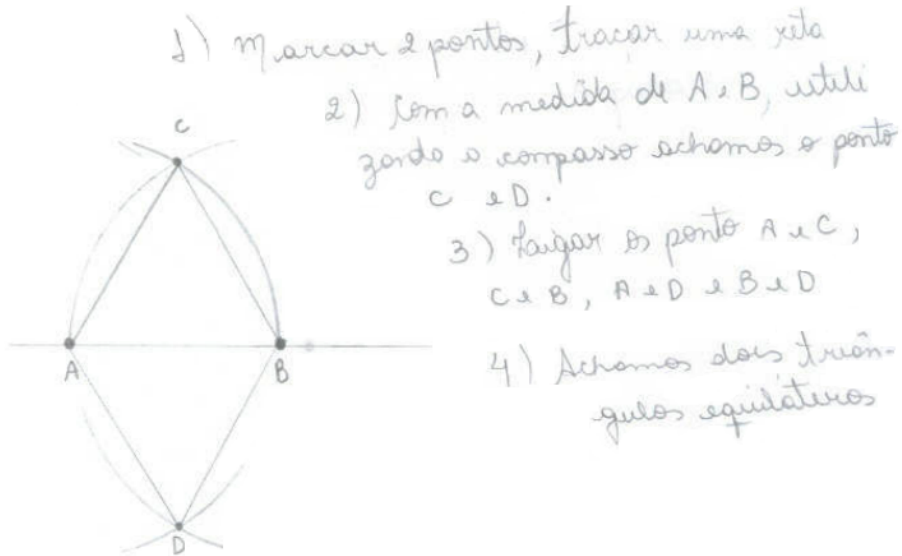 1) Marcar 2 pontos, traçar uma reta
2) Com a medida de A e B, utili
zando o compasso achamos o ponto
C e D.
3) Ligar os ponto A e C,
C e B, A e D e B e D
4) Achamos dois triân-
gulos equiláteros
C
A
B
D